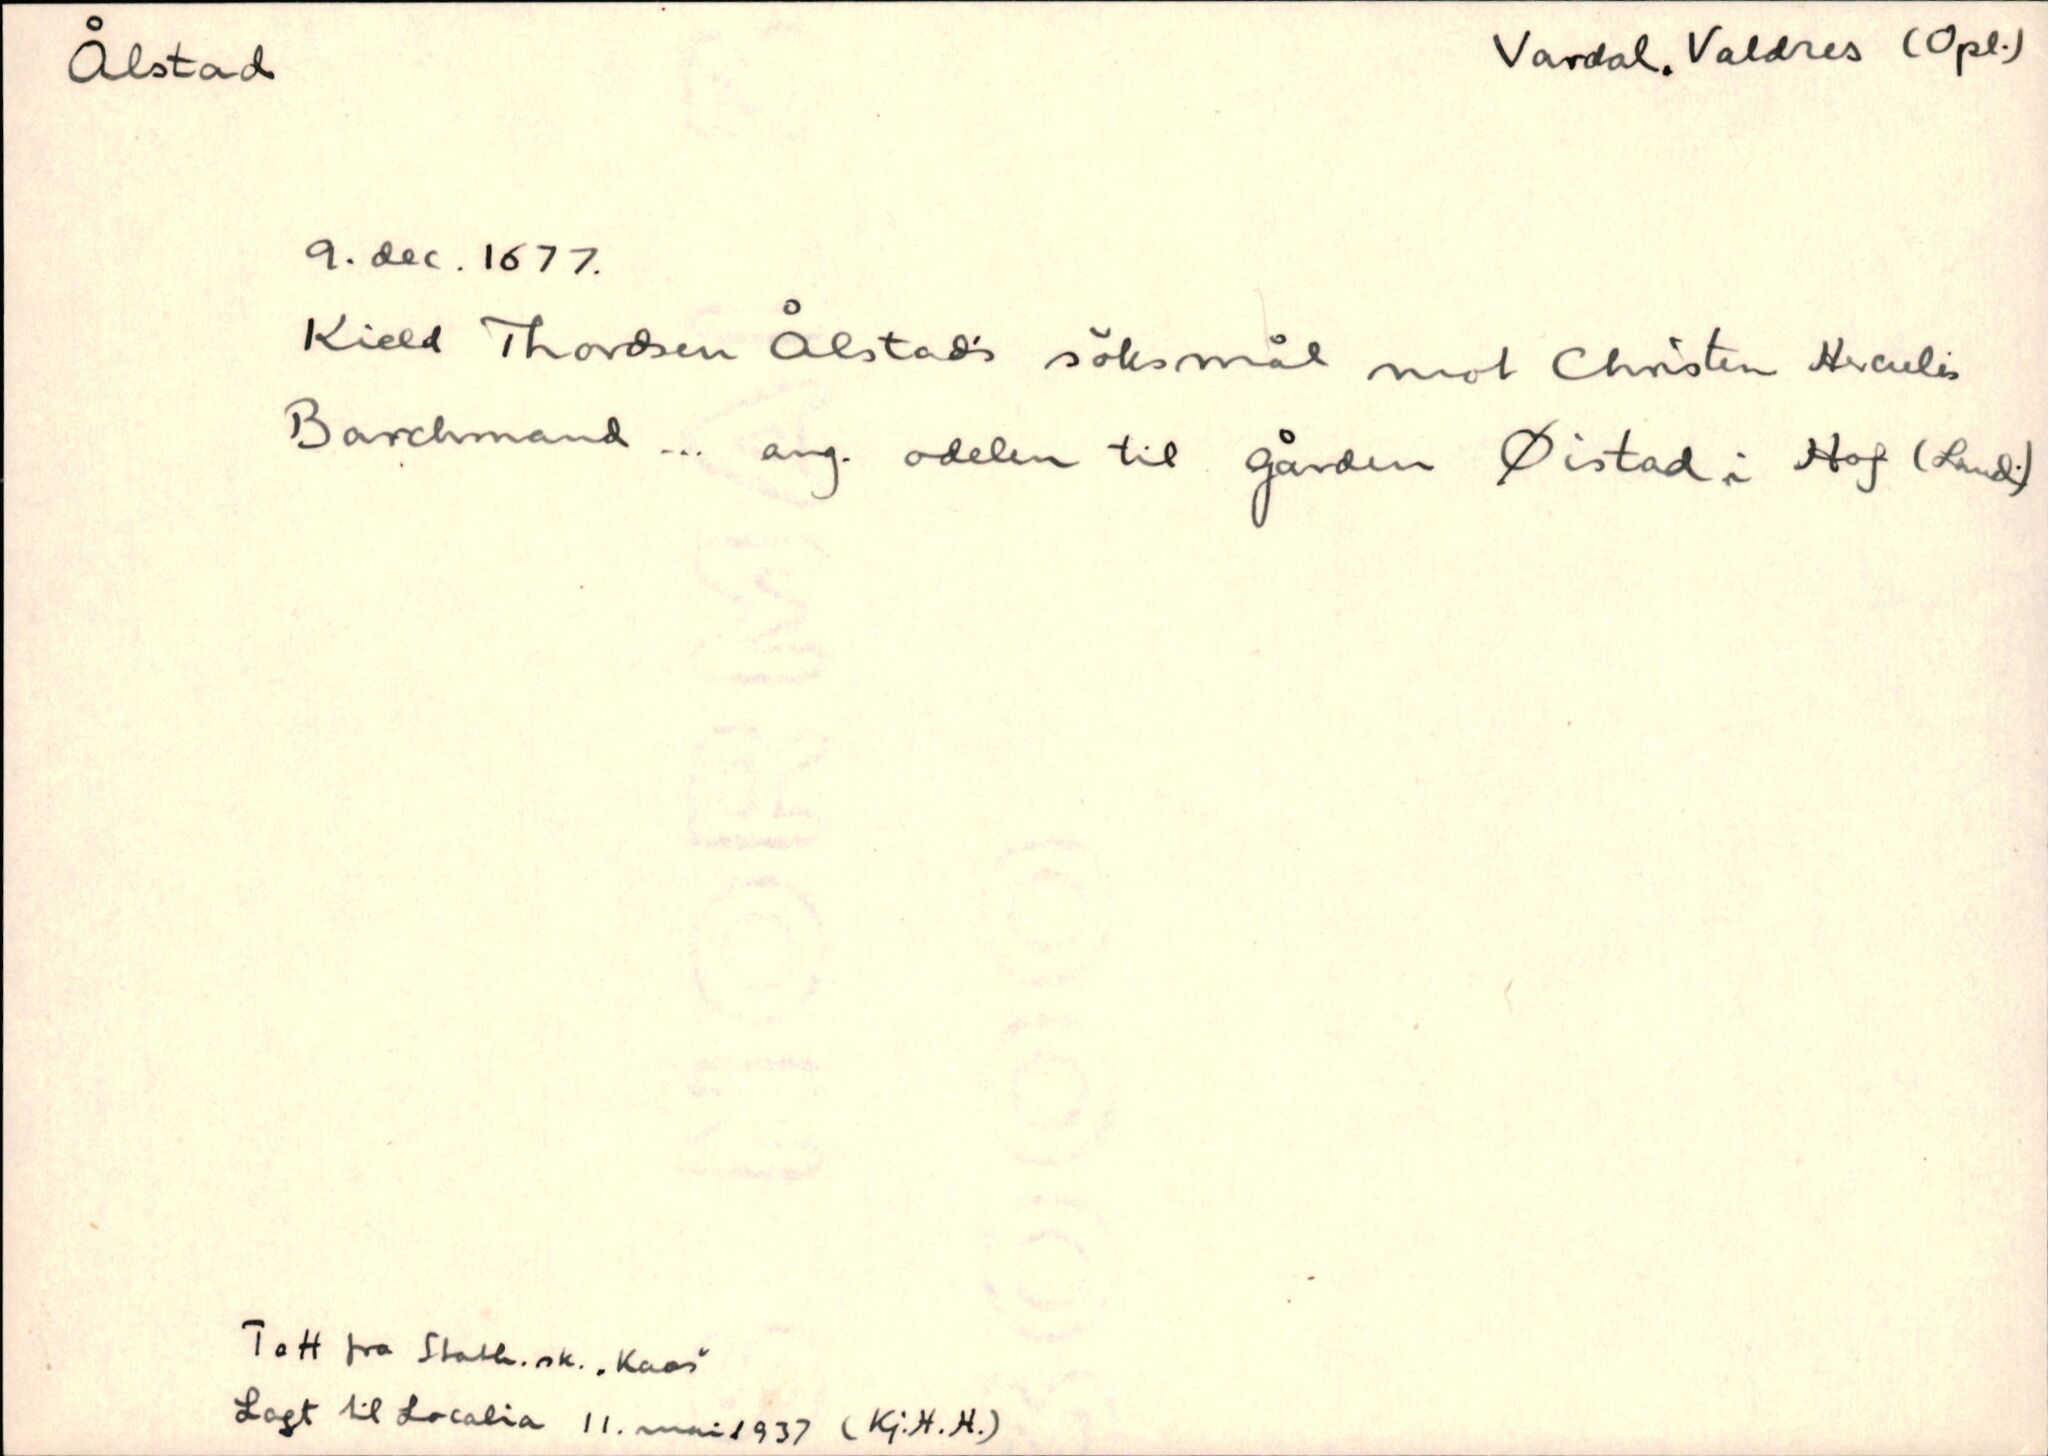 Ålstad
Vardal. Valdres (Opl.)
9. dec. 1677.
Kield Thordsen Ålstad's söksmål mot Christen Herculis
Barchmand ... ang. odelen til gården Øistad i Hof (Land.)
Tatt fra Stath. sk. „Kaos"
Lagt til Localia 11. mai 1937 (Kj. H. H.)